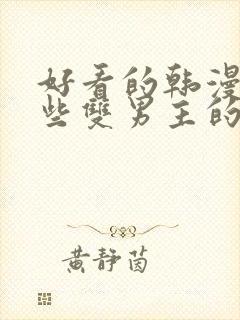 好看的韩漫
些雙男主的
黄靜茵